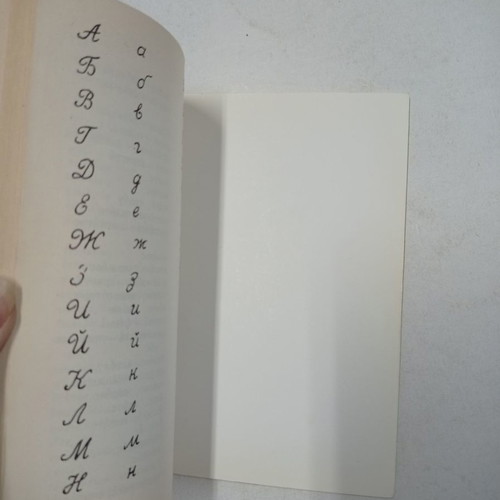 А а
Б б
В в
Г г
Д д
Е е
Ж ж
З з
И и
Й й
К к
Л л
М м
Н н